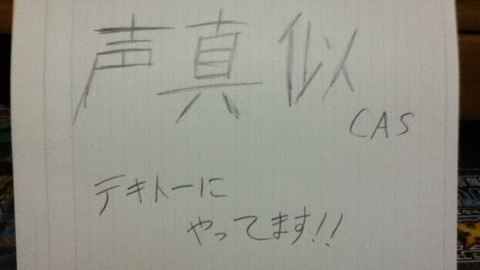 声真似
CAS
テキトーに
やってます!!